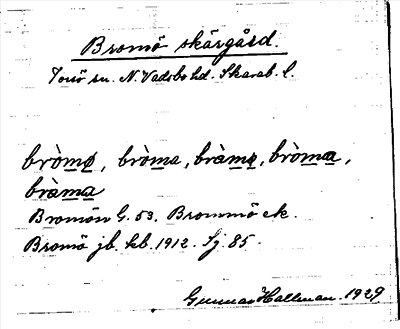 Bromö skärgård.
Torsö sn. N. Vadsbo hd. Skarab. l.
bròmø, bròma, bràmø, bròma,
bràma
Bromön G. 53. Brommö ek.
Bromö jb. kb. 1912. Sj. 85.
Gunnar Hallman 1929